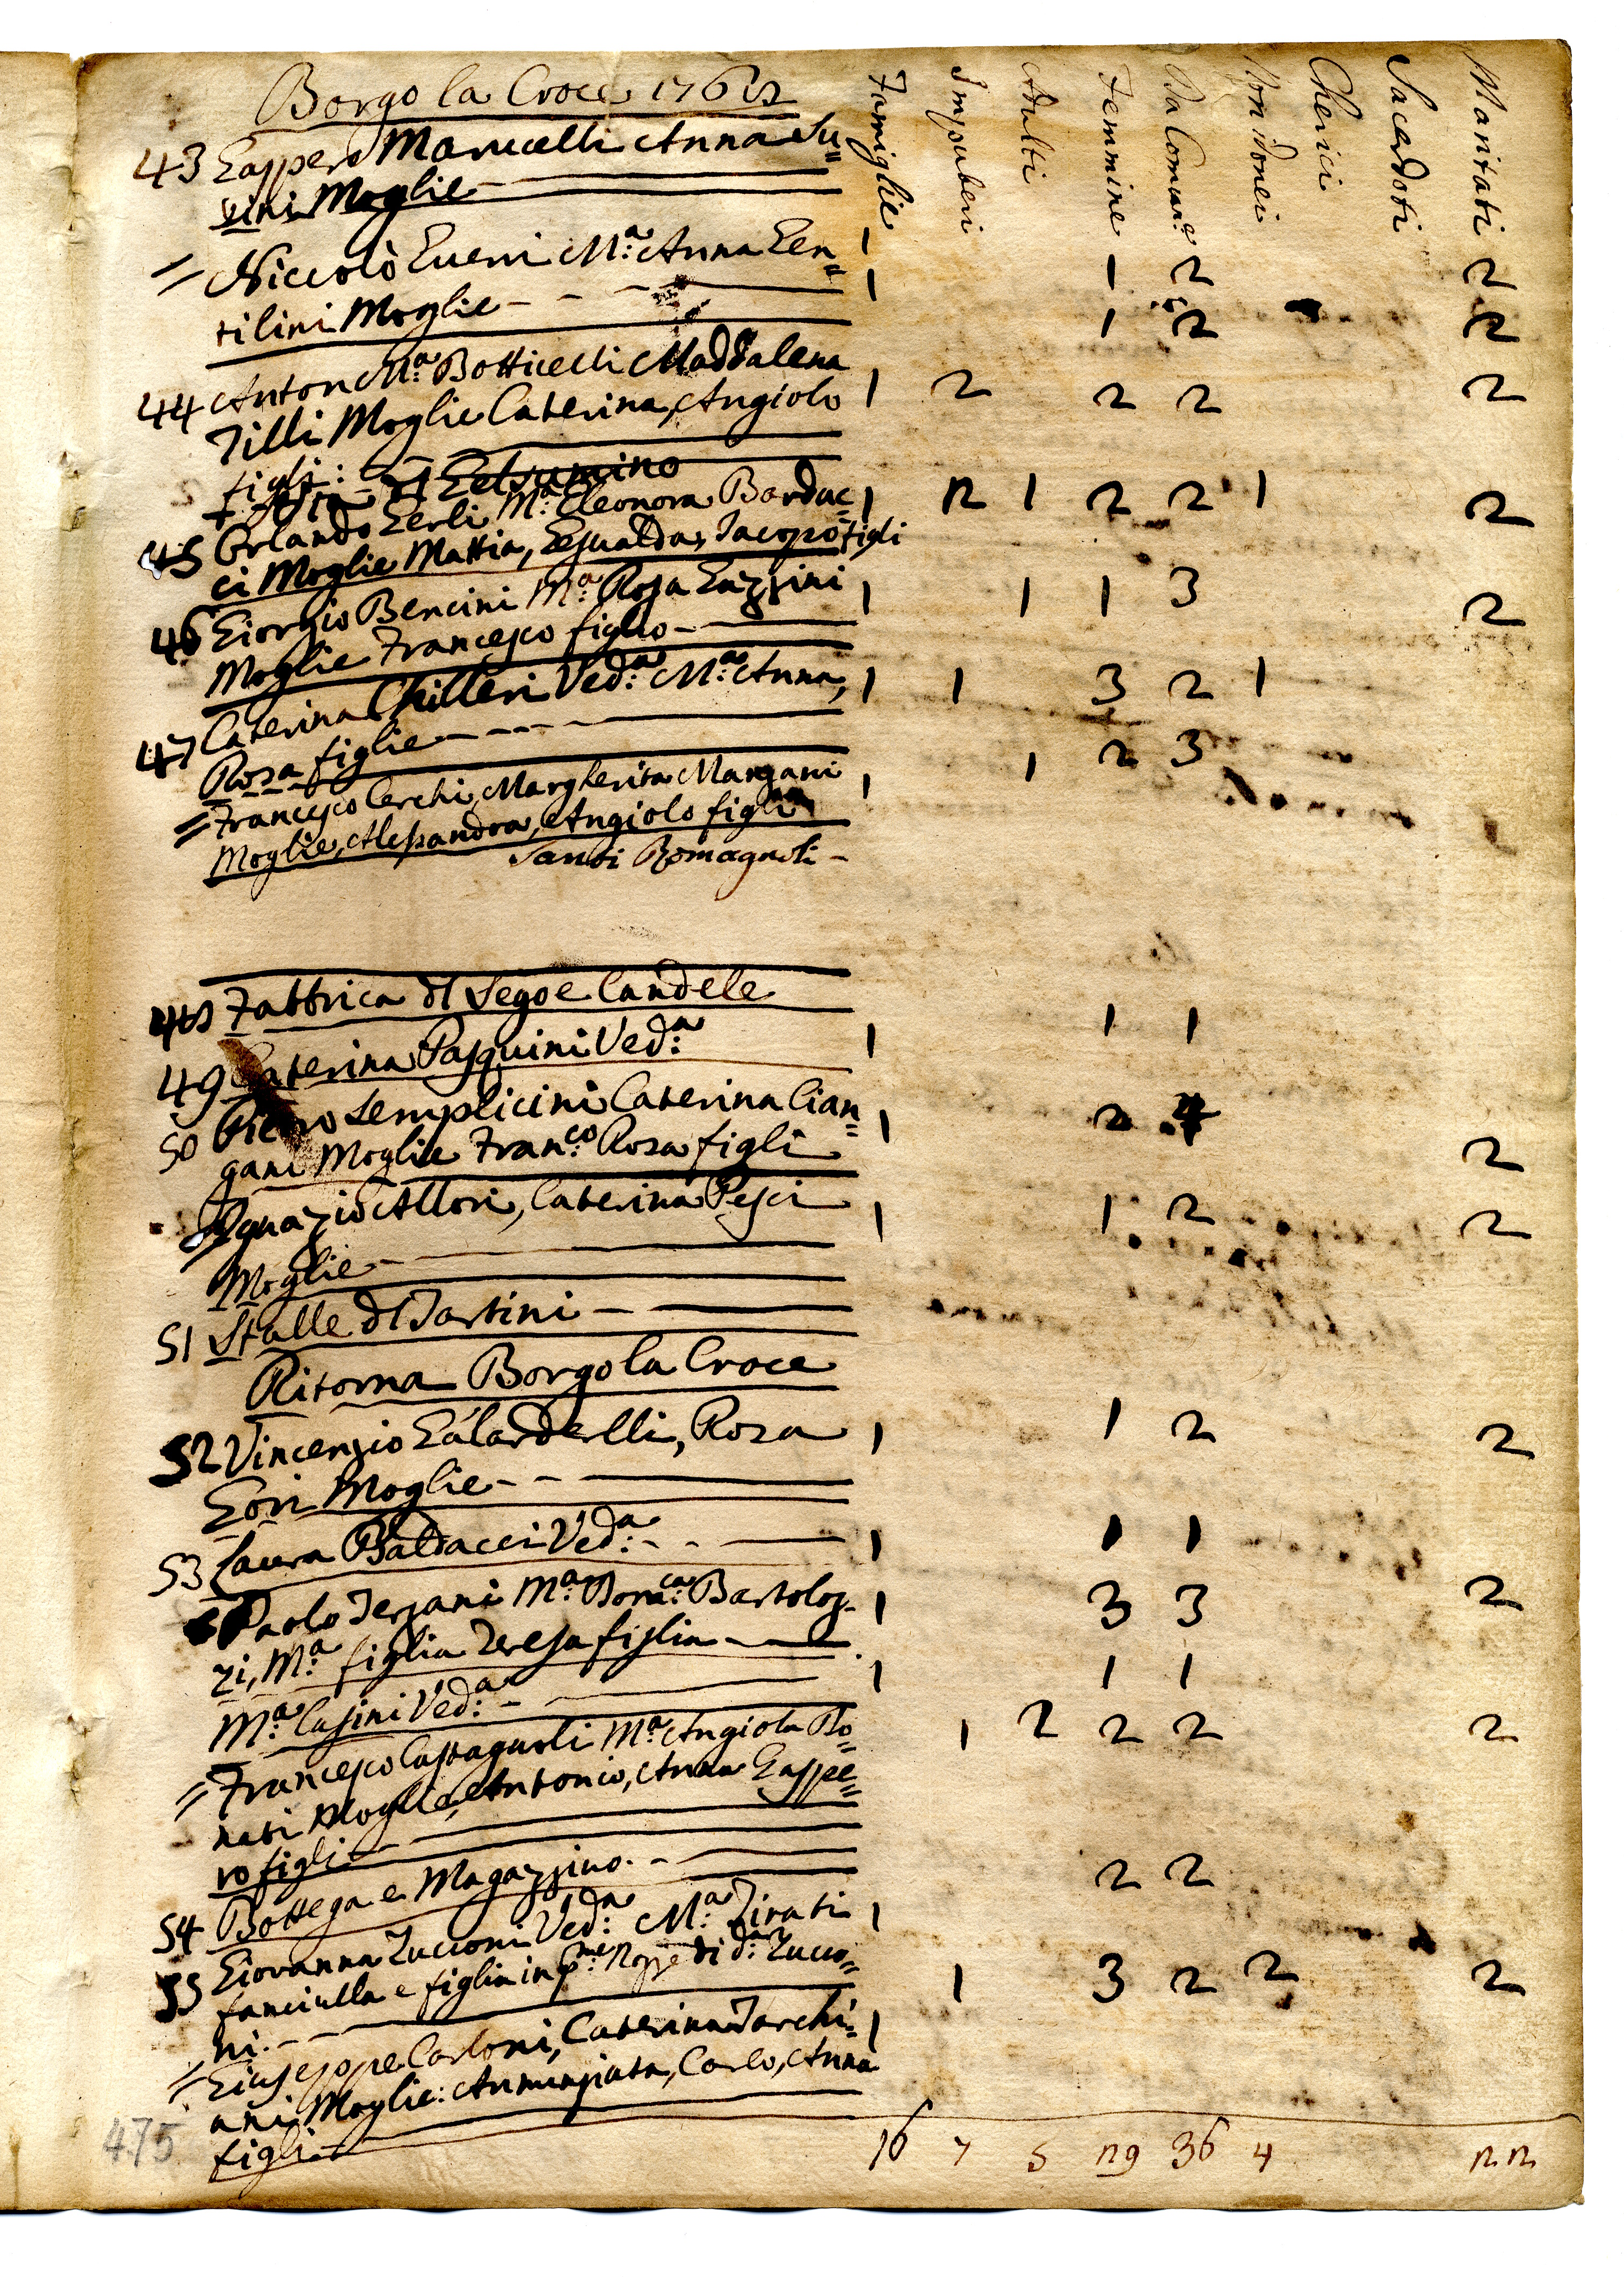 Borgo la Croce 1768
Famiglie
Impuberi
Adulti
Femmine
Da Comun.e
Non idonei
Cherici
Sacerdoti
Maritati
43 Gasspero Marucelli Anna Su=
sini Moglie 1 1 2 2
= Niccolò Guerri M.a Anna Gen=
tilini Moglie 1 1 2 2
44 Anton M.a Botticelli Maddalena
Tilli Moglie Caterina, Angiolo 1 2 2 2 2
figli:
45 Orlando Gerli M.a Eleonora Barduc= 1 2 1 2 2 1 2
ci Moglie Mattia, Gesualda, Jacopo figli
46 Giorgio Bencini M.a Rosa Gazzini 1 1 1 3 2
Moglie Francesco figlio
47 Caterina Chilleri Ved.a M.a Anna, 1 1 3 2 1
Rosa figlie
= Francesco Cerchi, Margherita Mangani 1 1 2 3
Moglie, Alessandra, Angiolo figli
Santi Romagnoli
48 Fabbrica dl Sego e Candele
49 Caterina Pasquini Ved.a 1 1 1
50 Pietro Semplicini Caterina Cian= 1 2 4 2
gani Moglie Fran.co Rosa figli
Ignazio Allori, Caterina Pesci 1 1 2 2
Moglie
51 Stalle dl Tartini
Ritorna Borgo la Croce
52 Vincenzio Galardelli, Rosa 1 1 2 2
Gori Moglie
53 Laura Baldacci Ved.a 1 1 1
Paolo Terzani M.a Dom.ca Bartoloz= 1 3 3 2
zi, M.a figlia Teresa figlia
M.a Casini Ved.a 1 1 1
= Francesco Castagnoli M.a Angiola Do= 1 2 2 2 2
nati Moglie, Antonio, Anna Gasspe=
ro figli
54 Bottega e Magazzino
55 Giovanna Zucconi Ved.a M.a Tinati 1 2 2
fanciulla e figlia in p.me Nozze di d.a Zucco=
ni
= Giuseppe Carloni, Caterina Tarchi= 1 1 3 2 2 2
ani Moglie: Annunziata, Carlo, Anna
figli
16 7 5 29 36 4 22
475